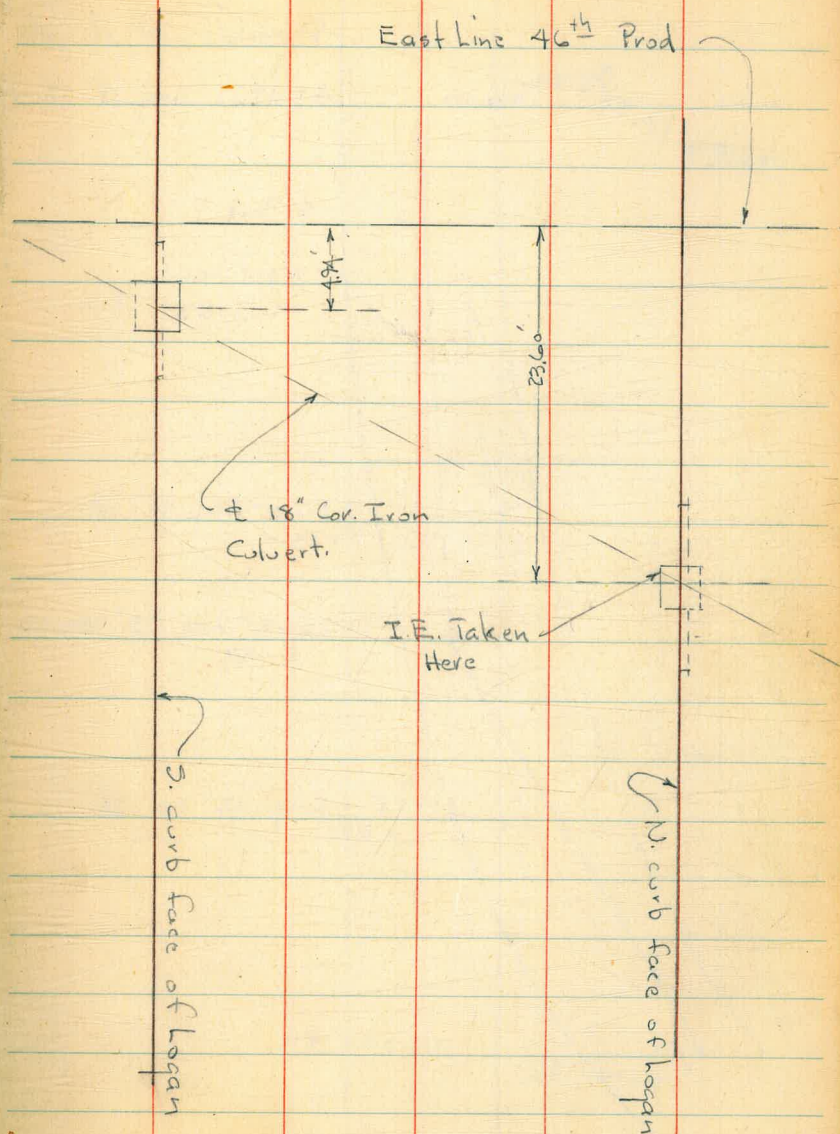 East Line 46th Prod
23.60'
℄ 18" Cor. Iron
Culvert.
I.E. Taken
Here
S. curb face of Logan
N. curb face of Logan